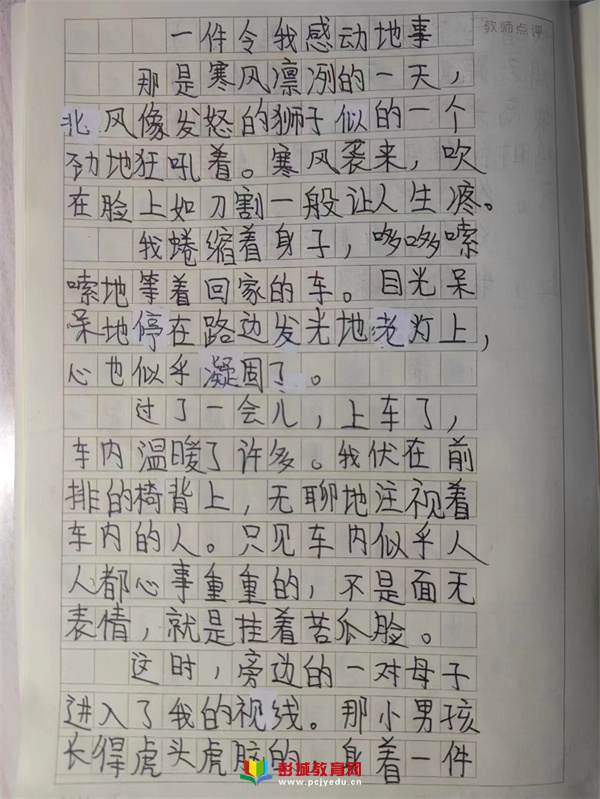 教师点评
一件令我感动地事
那是寒风凛冽的一天，
北风像发怒的狮子似的一个
劲地狂吼着。寒风袭来，吹
在脸上如刀割一般让人生疼。
我蜷缩着身子，哆哆嗦
嗦地等着回家的车。目光呆
呆地停在路边发光地老灯上，
心也似乎凝固了。
过了一会儿，上车了，
车内温暖了许多。我伏在前
排的椅背上，无聊地注视着
车内的人。只见车内似乎人
人都心事重重的，不是面无
表情，就是挂着苦瓜脸。
这时，旁边的一对母子
进入了我的视线。那小男孩
长得虎头虎脑的，身着一件
彭城教育网
www.pcjyedu.cn